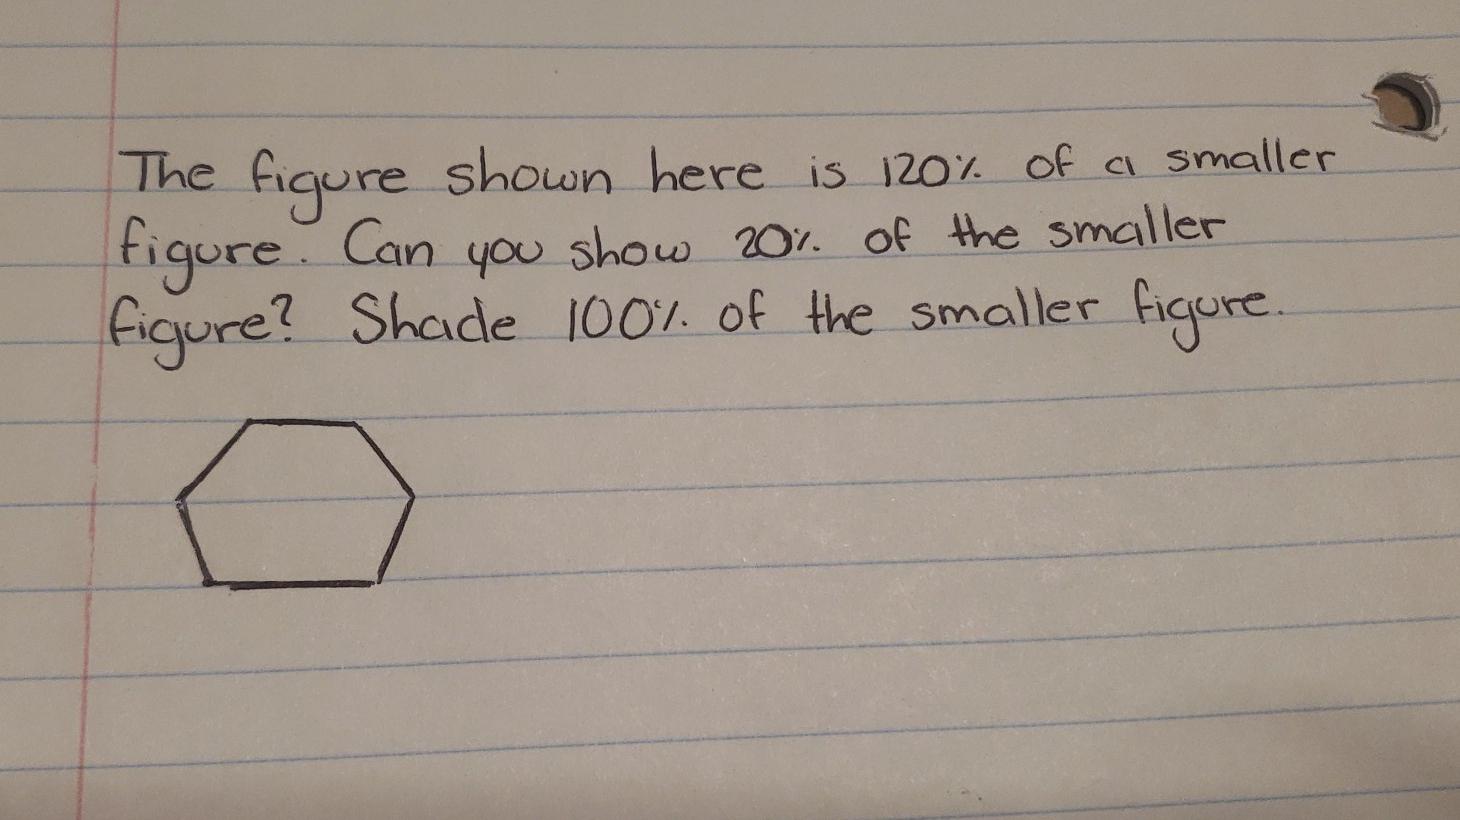 The figure shown here is 120% of a smaller
figure. Can you show 20% of the smaller
figure? Shade 100% of the smaller figure.